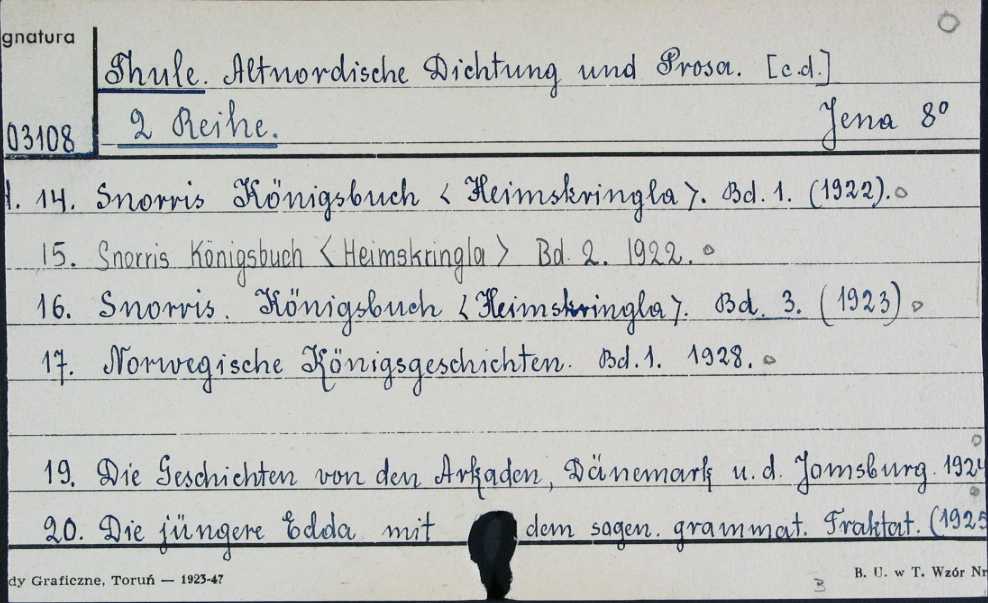 gnatura
Thule. Altnordische Dichtung und Prosa. [c.d.]
03108 2 Reihe. Jena 8º
14. Snorris Königsbuch <Heimskringla>. Bd. 1. (1922).
15. Snorris Königsbuch <Heimskringla> Bd. 2. 1922.
16. Snorris. Königsbuch <Heimskringla>. Bd. 3. (1923)
17. Norwegische Königsgeschichten. Bd. 1. 1928.
19. Die Geschichten von den Arkaden, Dänemark u. d. Jomsburg. 1924
20. Die jüngere Edda mit dem sogen. grammat. Traktat. (1925
dy Graficzne, Toruń — 1923-47
B. U. w T. Wzór Nr